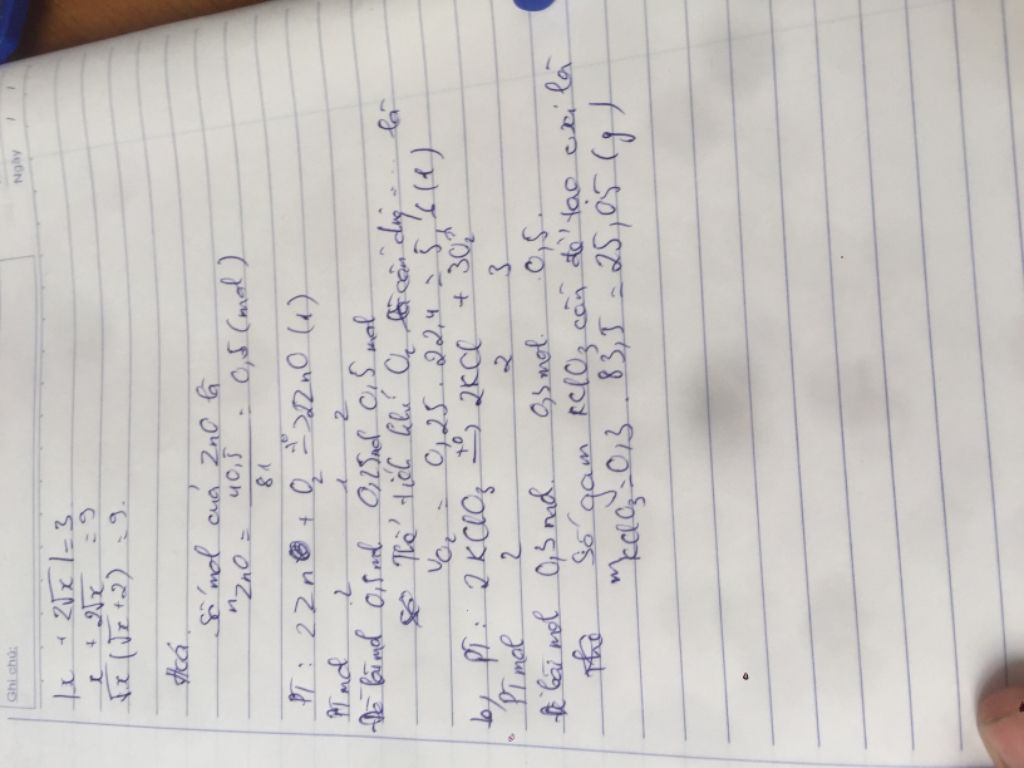 Ghi chú:
Ngày
|x + 2√x| = 3
x + 2√x = 9
√x (√x + 2) = 9.
Số mol của ZnO là
nZnO = 40,5 / 81 = 0,5 (mol)
PT : 2Zn + O2 →t° 2ZnO (1)
PT mol 2 1 2
Đề bài mol 0,5 mol 0,25 mol 0,5 mol
Thể tích khí O2 cần dùng là
VO2 = 0,25 . 22,4 = 5,6 (l)
b/ PT : 2KClO3 →t° 2KCl + 3O2
PT mol 2 2 3
Đề bài mol 0,3 mol 0,3 mol 0,5.
Số gam KClO3 cần để tạo oxi là
mKClO3 = 0,3 . 83,5 = 25,05 (g)